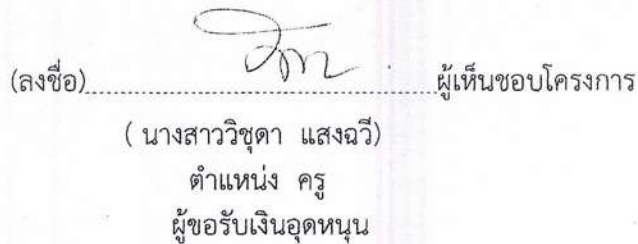 (ลงชื่อ)......................................................ผู้เห็นชอบโครงการ
( นางสาววิชุดา แสงฉวี)
ตำแหน่ง ครู
ผู้ขอรับเงินอุดหนุน